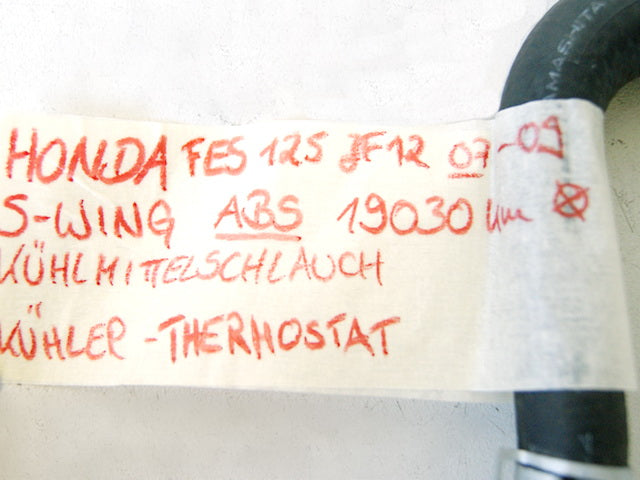 HONDA FES 125 JF12 07-09
S-WING ABS 19030 km
KÜHLMITTELSCHLAUCH
KÜHLER-THERMOSTAT